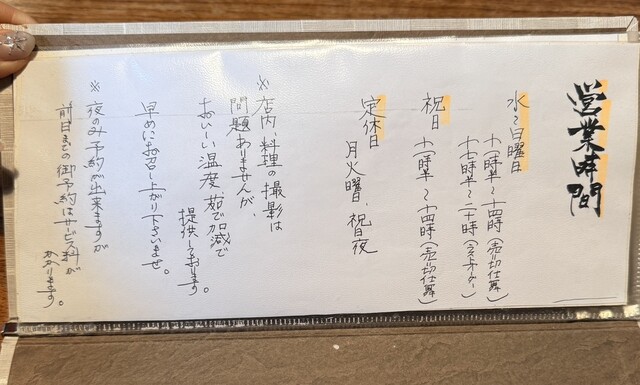 営業時間
水〜日曜日
十一時半〜十四時(売り切れ仕舞)
十七時半〜二十時(ラストオーダー)
祝日 十一時半〜十四時(売り切れ仕舞)
定休日
月火曜日、祝日夜
※店内、料理の撮影は
問題ありませんが、
おいしい温度、茹で加減で
提供しております。
早めにお召し上がり下さいませ。
※夜のみ予約が出来ますが
前日までの御予約はサービス料が
かかります。